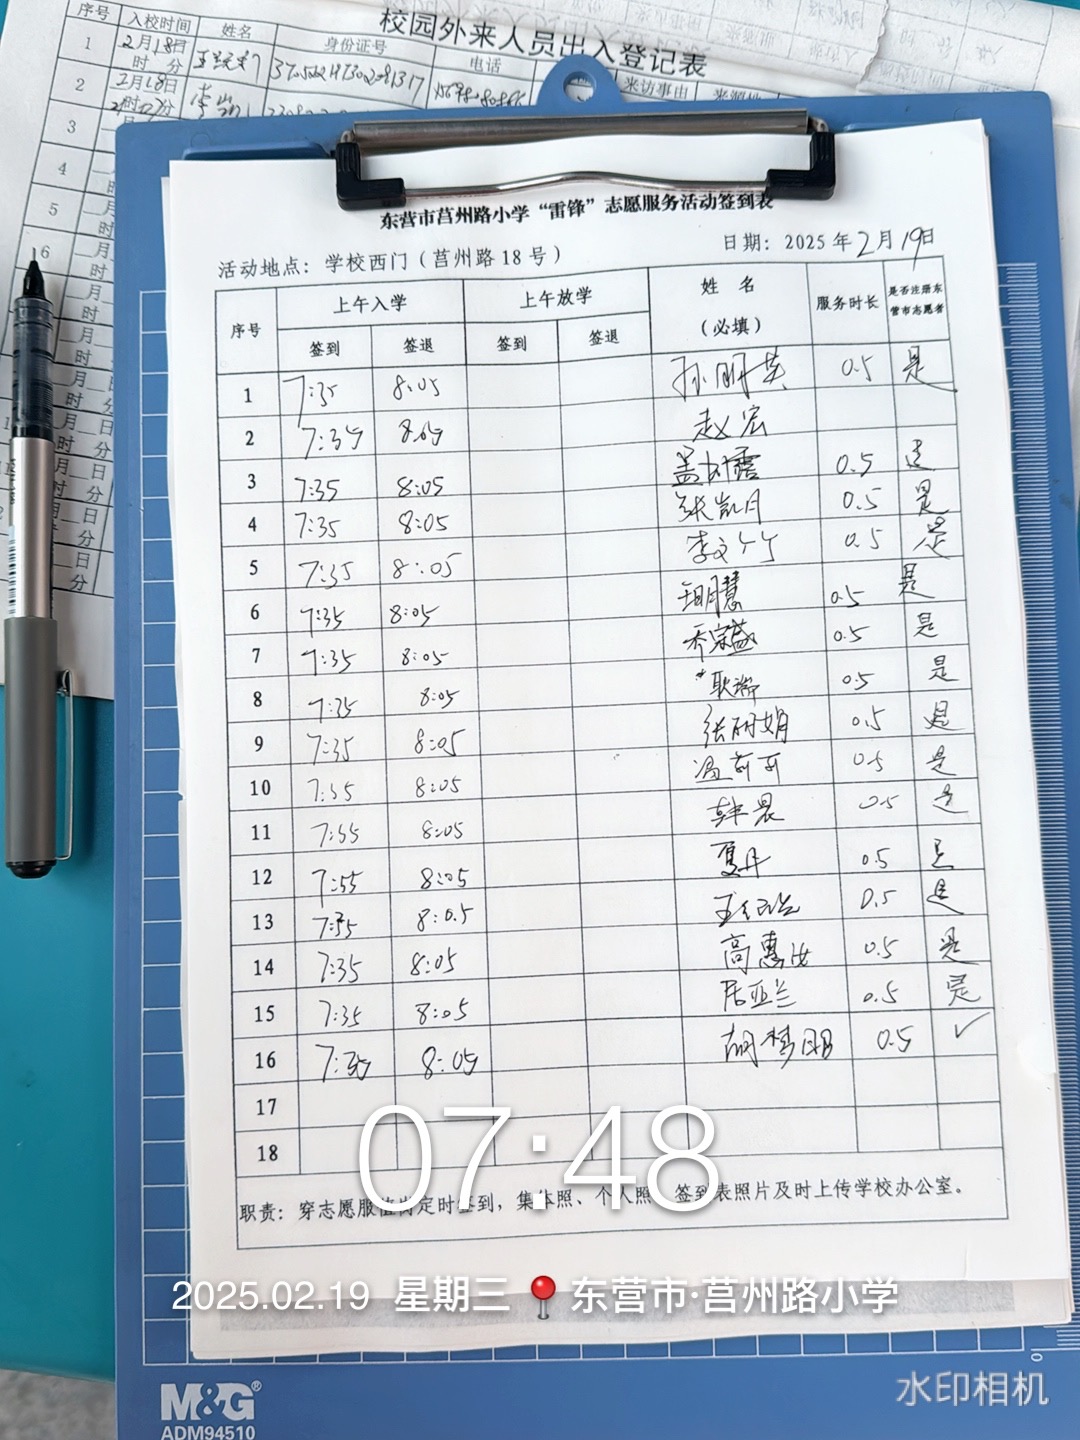 校园外来人员出入登记表
序号 入校时间 姓名 身份证号 电话 来访事由
1 2月18日
时 分
2 2月18日
3
4
5
6
东营市莒州路小学“雷锋”志愿服务活动签到表
活动地点：学校西门（莒州路18号） 日期：2025年2月19日
序号 上午入学 上午放学 姓名（必填） 服务时长 是否注册东营市志愿者
签到 签退 签到 签退
1 7:35 8:05 孙明英 0.5 是
2 7:35 8:05 赵宏
3 7:35 8:05 0.5 是
4 7:35 8:05 张凯月 0.5 是
5 7:35 8:05 李文竹 0.5 是
6 7:35 8:05 0.5 是
7 7:35 8:05 乔宗盛 0.5 是
8 7:35 8:05 耿瑞 0.5 是
9 7:35 8:05 张丽娟 0.5 是
10 7:35 8:05 冯莉莉 0.5 是
11 7:35 8:05 韩晨 0.5 是
12 7:35 8:05 夏丹 0.5 是
13 7:35 8:0.5 0.5 是
14 7:35 8:05 高惠汝 0.5 是
15 7:35 8:05 0.5 是
16 7:35 8:05 胡梦 0.5 ✓
17
18
职责：穿志愿服值岗定时签到，集体照、个人照、签到表照片及时上传学校办公室。
07:48
2025.02.19 星期三 东营市·莒州路小学
水印相机
M&G®
ADM94510